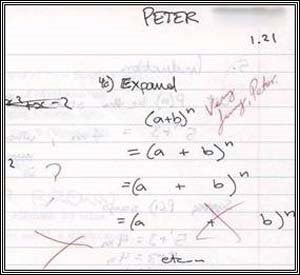 PETER
1.21
4c) Expand
x² + x - 2
(a+b)ⁿ
Very
funny, Peter.
= (a + b)ⁿ
2
?
= (a + b)ⁿ
= (a + b)ⁿ
etc...